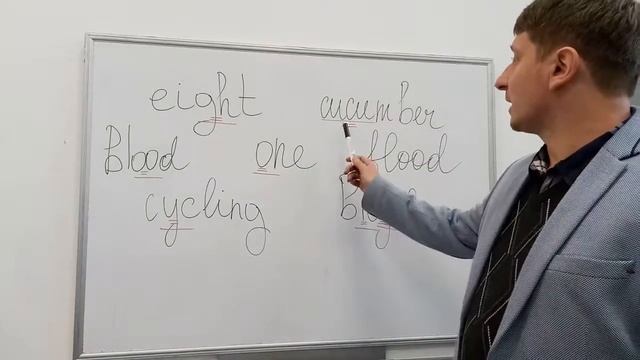 eight cucumber
Blood one flood
cycling